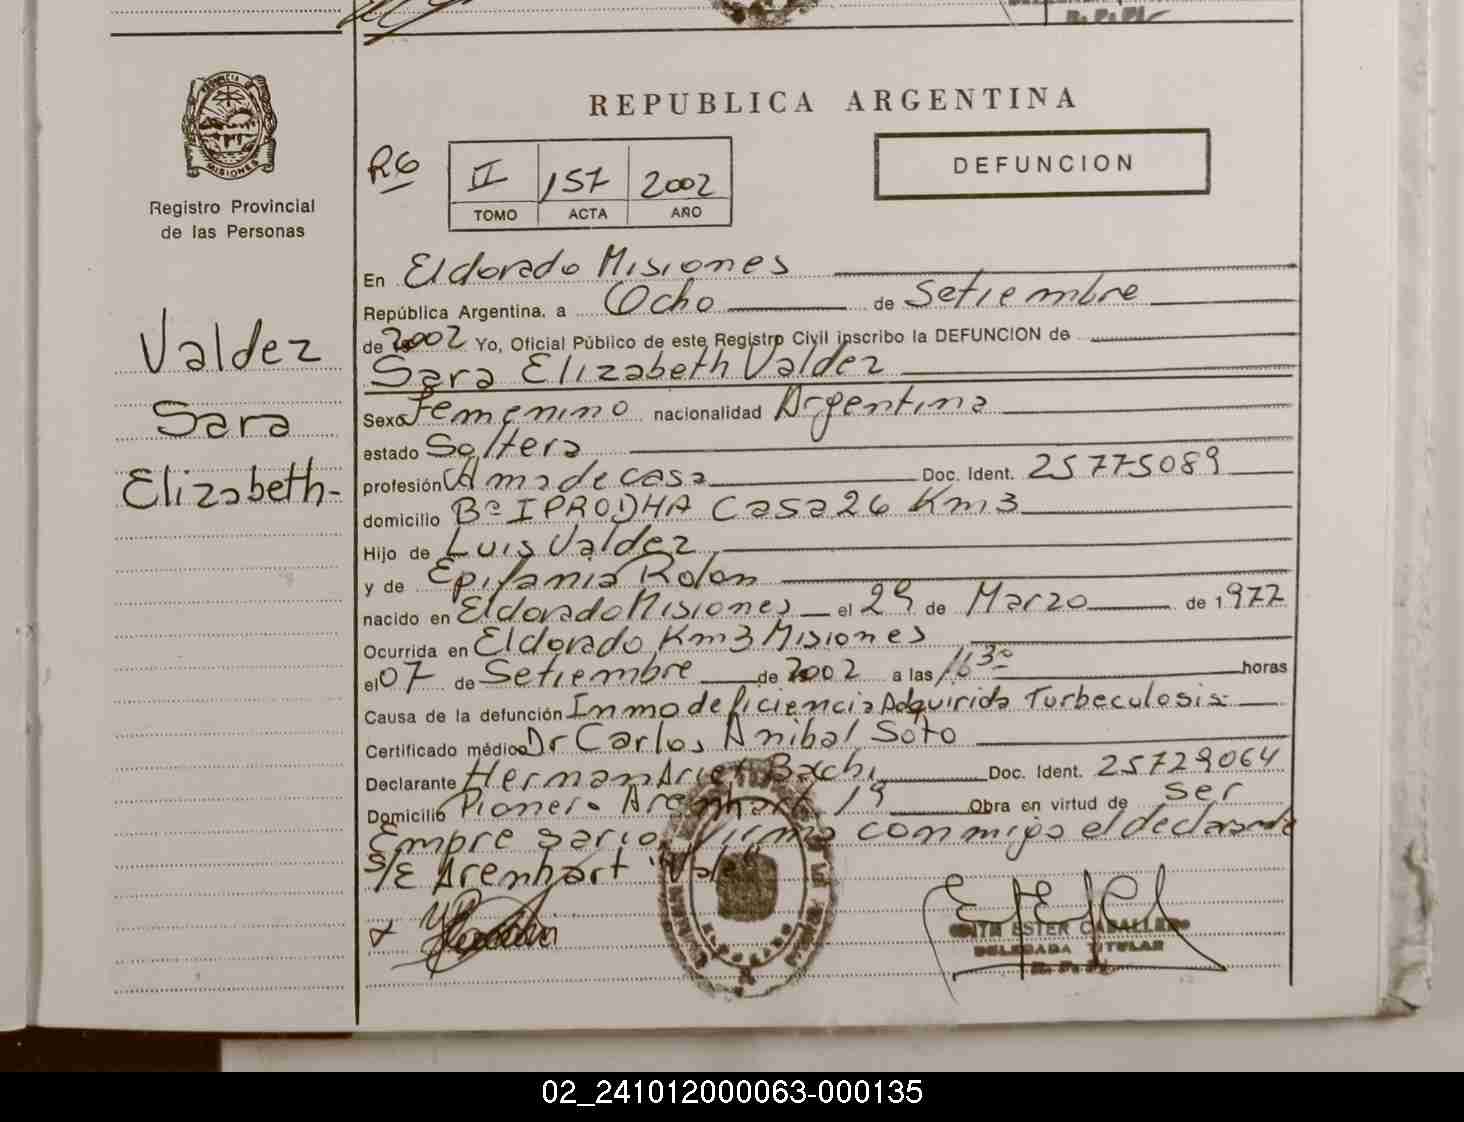 REPUBLICA ARGENTINA
PROVINCIA DE
MISIONES
Registro Provincial
de las Personas
R6
II 157 2002
TOMO ACTA AÑO
DEFUNCION
Valdez
Sara
Elizabeth-
En Eldorado Misiones
República Argentina, a Ocho de Setiembre
de 2002 Yo, Oficial Público de este Registro Civil inscribo la DEFUNCION de
Sara Elizabeth Valdez
Sexo Femenino nacionalidad Argentina
estado Soltera
profesión Ama de casa Doc. Ident. 25775089
domicilio Bº IPRODHA Casa 26 Km 3
Hijo de Luis Valdez
y de Epifania Rolon
nacido en Eldorado Misiones el 29 de Marzo de 1977
Ocurrida en Eldorado Km 3 Misiones
el 07 de Setiembre de 2002 a las 16 30 horas
Causa de la defunción Inmodeficiencia Adquirida Turbeculosis
Certificado médico Dr Carlos Anibal Soto
Declarante Herman Ariel Bachi Doc. Ident. 25729064
Domicilio Pionero Arenhart 19 Obra en virtud de ser
Empresario, Firma conmigo el declarante
S/E Arenhart "Vale"
ESTER CABALLERO
DELEGADA TITULAR
R. P. P.
02_241012000063-000135